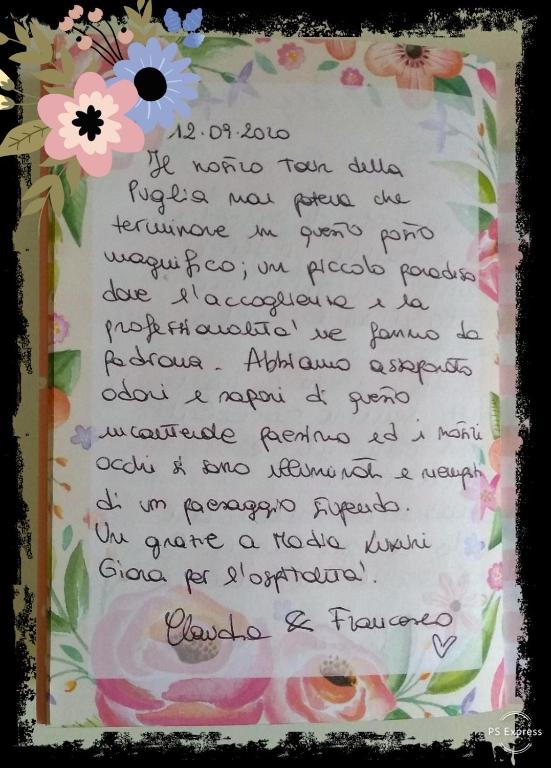 12.09.2020
Il nostro Tour della
Puglia non poteva che
terminare in questo posto
magnifico; un piccolo paradiso
dove l'accoglienza e la
professionalità ne fanno da
padrona. Abbiamo assaporato
odori e sapori di questo
incantevole paesino ed i nostri
occhi si sono illuminati e riempiti
di un paesaggio stupendo.
Un grazie a
per l'ospitalità.
Claudia & Francesco
PS Express